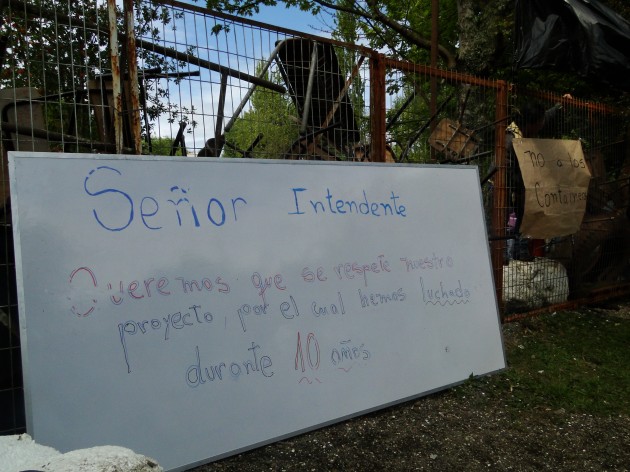 Señor Intendente
Queremos que se respete nuestro
proyecto, por el cual hemos luchado
durante 10 años
no a los